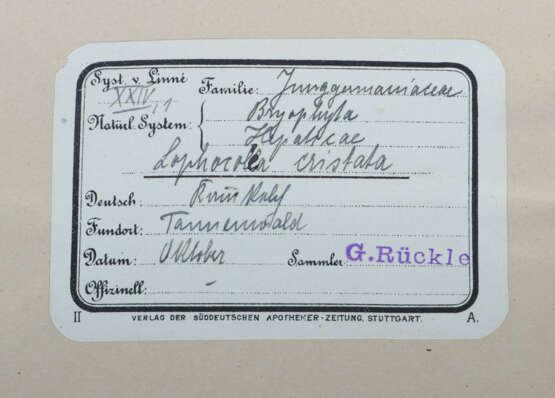 Syst. v. Linné XXIV, 1
Familie: Junggermaniaceae
Natürl. System: { Bryophyta
Hepaticae
Lophocolea cristata
Deutsch:
Fundort: Tannenwald
Datum: Oktober Sammler: G. Rückle
Offizinell: -
II VERLAG DER SÜDDEUTSCHEN APOTHEKER-ZEITUNG, STUTTGART. A.